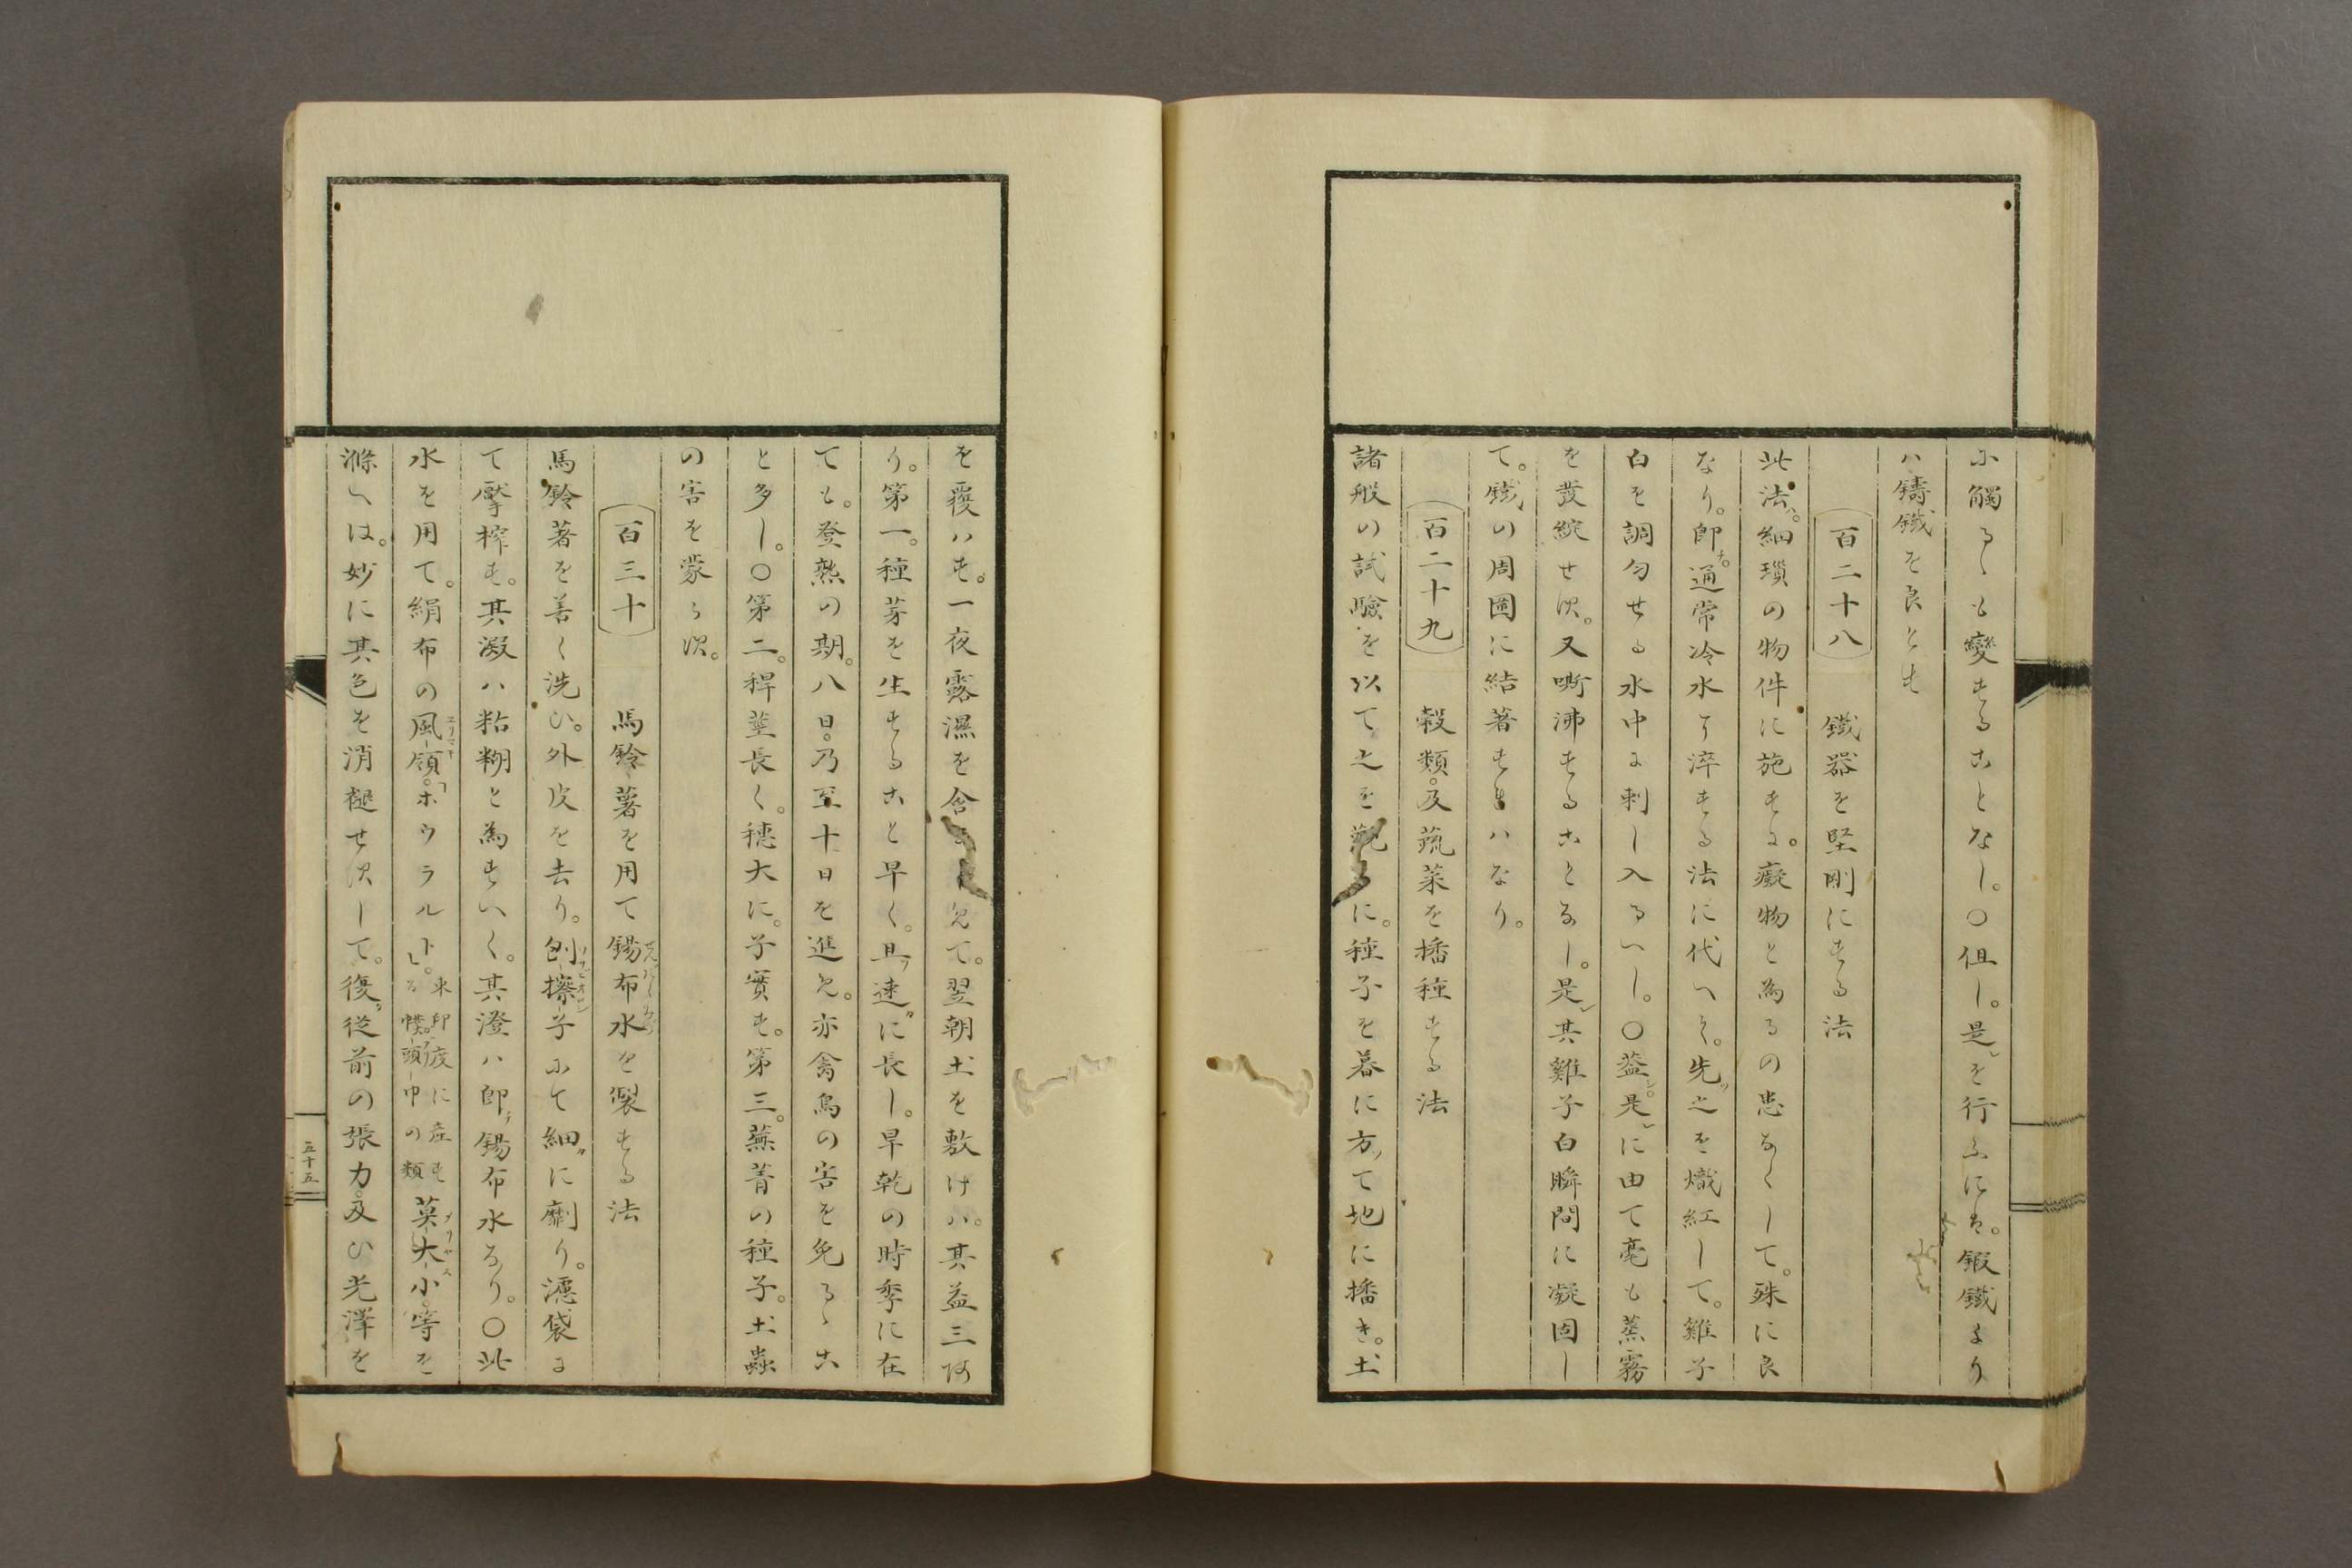 に觸るゝも變することなし。○但し。是レを行ふにハ。鍛鐵より
ハ鑄鐵を良とす
百二十八　鐵器を堅剛にする法
此法ハ。細瑣の物件に施すに。癡物と為るの患なくして。殊に良
なり。卽チ。通常冷水に淬する法に代へて。先ツ之を熾紅して。雞子
白を調匀せる水中に刺し入るへし。○葢シ。是レに由て毫も蒸霧
を發綻せす。又嘶沸することなし。是レ其雞子白瞬間に凝固し
て。鐵の周圍に結著すれハなり。
百二十九　穀類。及蔬菜を播種する法
諸般の試驗を以て之を觀るに。種子を暮に方ッて地に播き。土
を覆ハす。一夜露濕を含ましめて。翌朝土を敷けハ。其益三阿
り。第一。種芽を生すること早く。且ッ速カに長し。早乾の時季に在
ても。登熟の期。八日。乃至十日を進め。亦禽鳥の害を免るゝこ
と多し。○第二。稈莖長く。穗大に。子實す。第三。蕪菁の種子。土蟲
の害を蒙らす。
百三十　馬鈴薯を用て錫布水を製する法
馬鈴著を善く洗ひ。外皮を去り。刨擦子ニて細カに劘り。濾袋に
て壓搾す。其澱ハ粘糊と為すへく。其澄ハ卽チ錫布水なり。○此
水を用て。絹布の風領。「ホウラルト」。米印度に産する襆頭巾の類 莫大小。等を
滌へは。妙に其色を消褪せすして。復タ從前の張力。及ひ光澤を
五十五